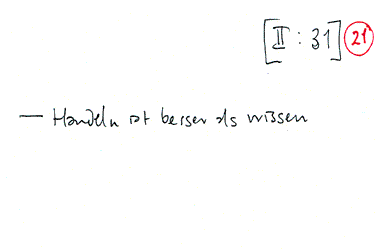 [II : 31] 21
— Handeln ist besser als wissen